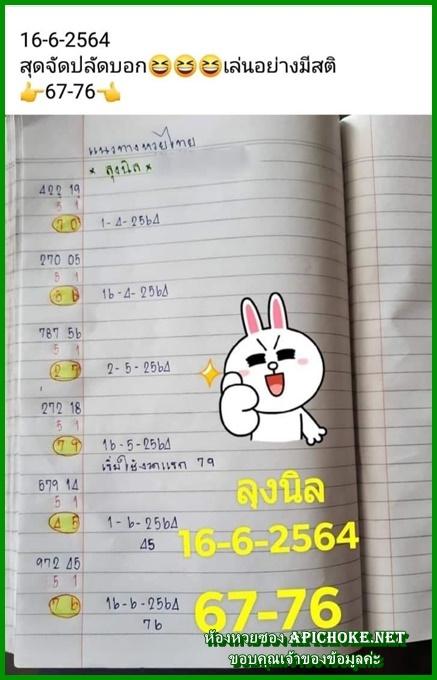 16-6-2564
สุดจัดปลัดบอก😆😆😆เล่นอย่างมีสติ
👉67-76👈
แนวทางหวยไทย
* ลุงนิล *
422 19
5 1
70
1-4-2564
270 05
5 1
56
16-4-2564
787 56
5 1
27
2-5-2564
272 18
5 1
79
16-5-2564
เริ่มใช้งวดแรก 79
679 14
5 1
45
1-6-2564
45
972 45
5 1
76
16-6-2564
76
ลุงนิล
16-6-2564
67-76
ห้องหวยซอง APICHOKE.NET
ขอบคุณเจ้าของข้อมูลค่ะ